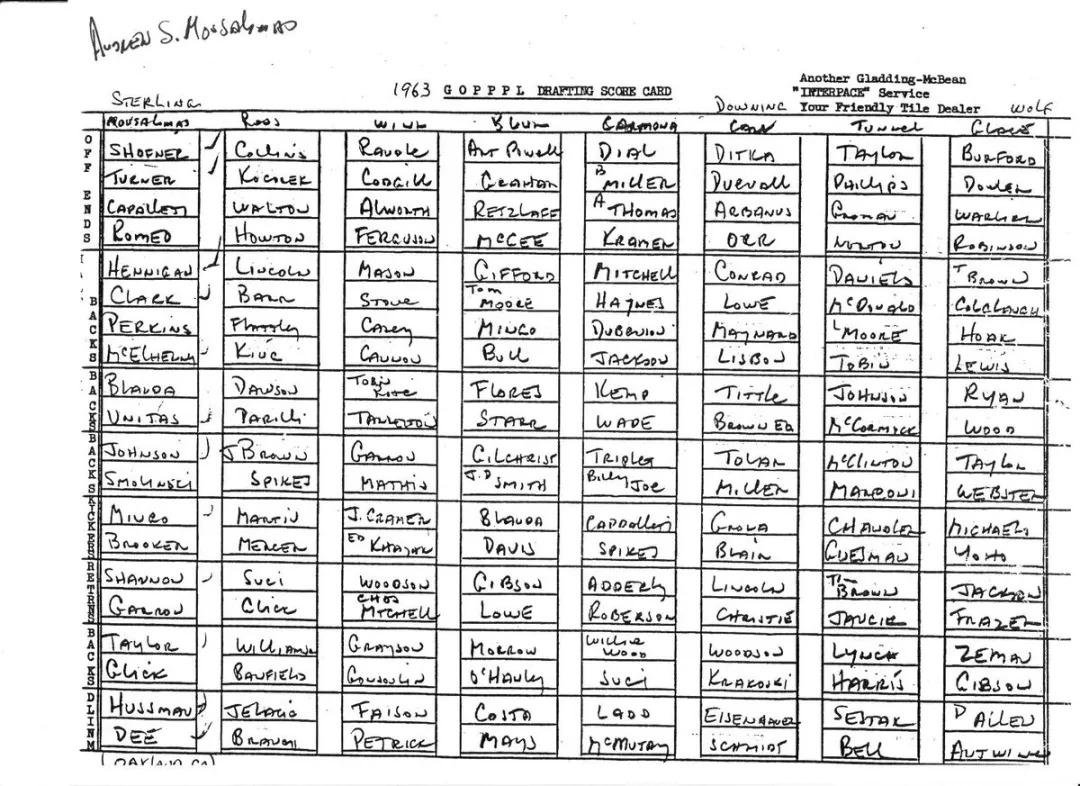 Andrew S. Mousalimas
Another Gladding-McBean
"INTERPACE" Service
Your Friendly Tile Dealer
1963 GOPPPL DRAFTING SCORE CARD
STERLING DOWNING WOLF
MOUSALMAS ROSS WINK BLUM CARMONA TUNNEL GLASS
OFF ENDS
SHOFNER COLLINS RAVOLE ART POWELL DIAL DITKA TAYLOR BURFORD
TURNER KOCOREK COGGILL GRAHAM B MILLER DUEVALL PHILLIPS DOWLER
CAPPELLETI WALTON ALWORTH RETZLAFF A THOMAS ARBANUS GROMAN
ROMEO HOWTON FERGUSON McGEE KRAMER ORR NORTON ROBINSON
BACKS
HENNIGAN LINCOLN MASON GIFFORD MITCHELL CONRAD DANIELS T BROWN
CLARK BARR STOVE TOM MOORE HAYNES LOWE McDONALD COLCLOUGH
PERKINS FLATLEY CASEY MINGO DUBENION MAYNARD L MOORE HOAK
McELHENNY KING CANNON BULL JACKSON LISBON TOBIN LEWIS
BACKS
BLANDA DAWSON TOBIN ROTE FLORES KEMP TITTLE JOHNSON RYAN
UNITAS PARILLI TARKETON STARR WADE BROWN ED McCORMICK WOOD
BACKS
JOHNSON J BROWN GARRON GILCHRIST TRIPLET TOLAR McCLINTON TAYLOR
SMOLINSKI SPIKES MATHIS J.D SMITH BILLY JOE MILLER MARCONI WEBSTER
KICKERS
MINGO MARTIN J. CRAMER BLANDA CAPPOLLETI GROZA CHANDLER MICHAELS
BROOKER MERCER ED KHAYAT DAVIS SPIKES BLAIR GUESMAN YOHO
RETRNS
SHANNON SUCI WOODSON GIBSON ADDERLY LINCOLN TIM BROWN JACKSON
GARRON GLICK CHOS MITCHELL LOWE ROBERSON CHRISTIE JANCIK FRAZER
BACKS
TAYLOR WILLIAMS GRAYSON MORROW WILLIE WOOD WOODSON LYNCH ZEMAN
GLICK BANFIELD GONSOULIN O'HANLEY SUCI KRAKOSKI HARRIS GIBSON
DLINM
HUSSMAN JELACIC FAISON COSTA LADD EISENHAUER SESTAK D ALLEN
DEE BRAUGH PETRICK MAYS McMUTRY SCHMIDT BELL ANTWINE